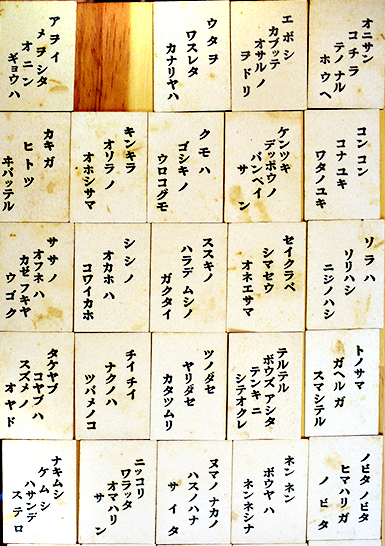 オニサン
コチラ
テノ ナル
ホウヘ
エボシ
カブッテ
オサルノ
ヲドリ
ウタヲ
ワスレタ
カナリヤハ
アヲイ
メヲシタ
オニン
ギョウハ
コンコン
コナユキ
ワタノユキ
ケンツキ
デッポウノ
バンペイ
サン
クモハ
ゴシキノ
ウロコグモ
キンキラ
オソラノ
オホシサマ
カキガ
ヒトツ
ヰバッテル
ソラハ
ソリハシ
ニジノハシ
セイクラベ
シマセウ
オネエサマ
ススキノ
ハラデムシノ
ガクタイ
シシノ
オカホハ
コワイカホ
ササノ
オフネハ
カゼフキヤ
ウゴク
トノサマ
ガヘルガ
スマシテル
テルテル
ボウズ アシタ
テンキニ
シテオクレ
ツノダセ
ヤリダセ
カタツムリ
チイチイ
ナクノハ
ツバメノコ
タケヤブ
コヤブハ
スズメノ
オヤド
ノビタ ノビタ
ヒマハリガ
ノビタ
ネンネン
ボウヤハ
ネンネシナ
ヌマノ ナカノ
ハスノハナ
サイタ
ニッコリ
ワラッタ
オマハリ
サン
ナキムシ
ケムシ
ハサンデ
ステロ